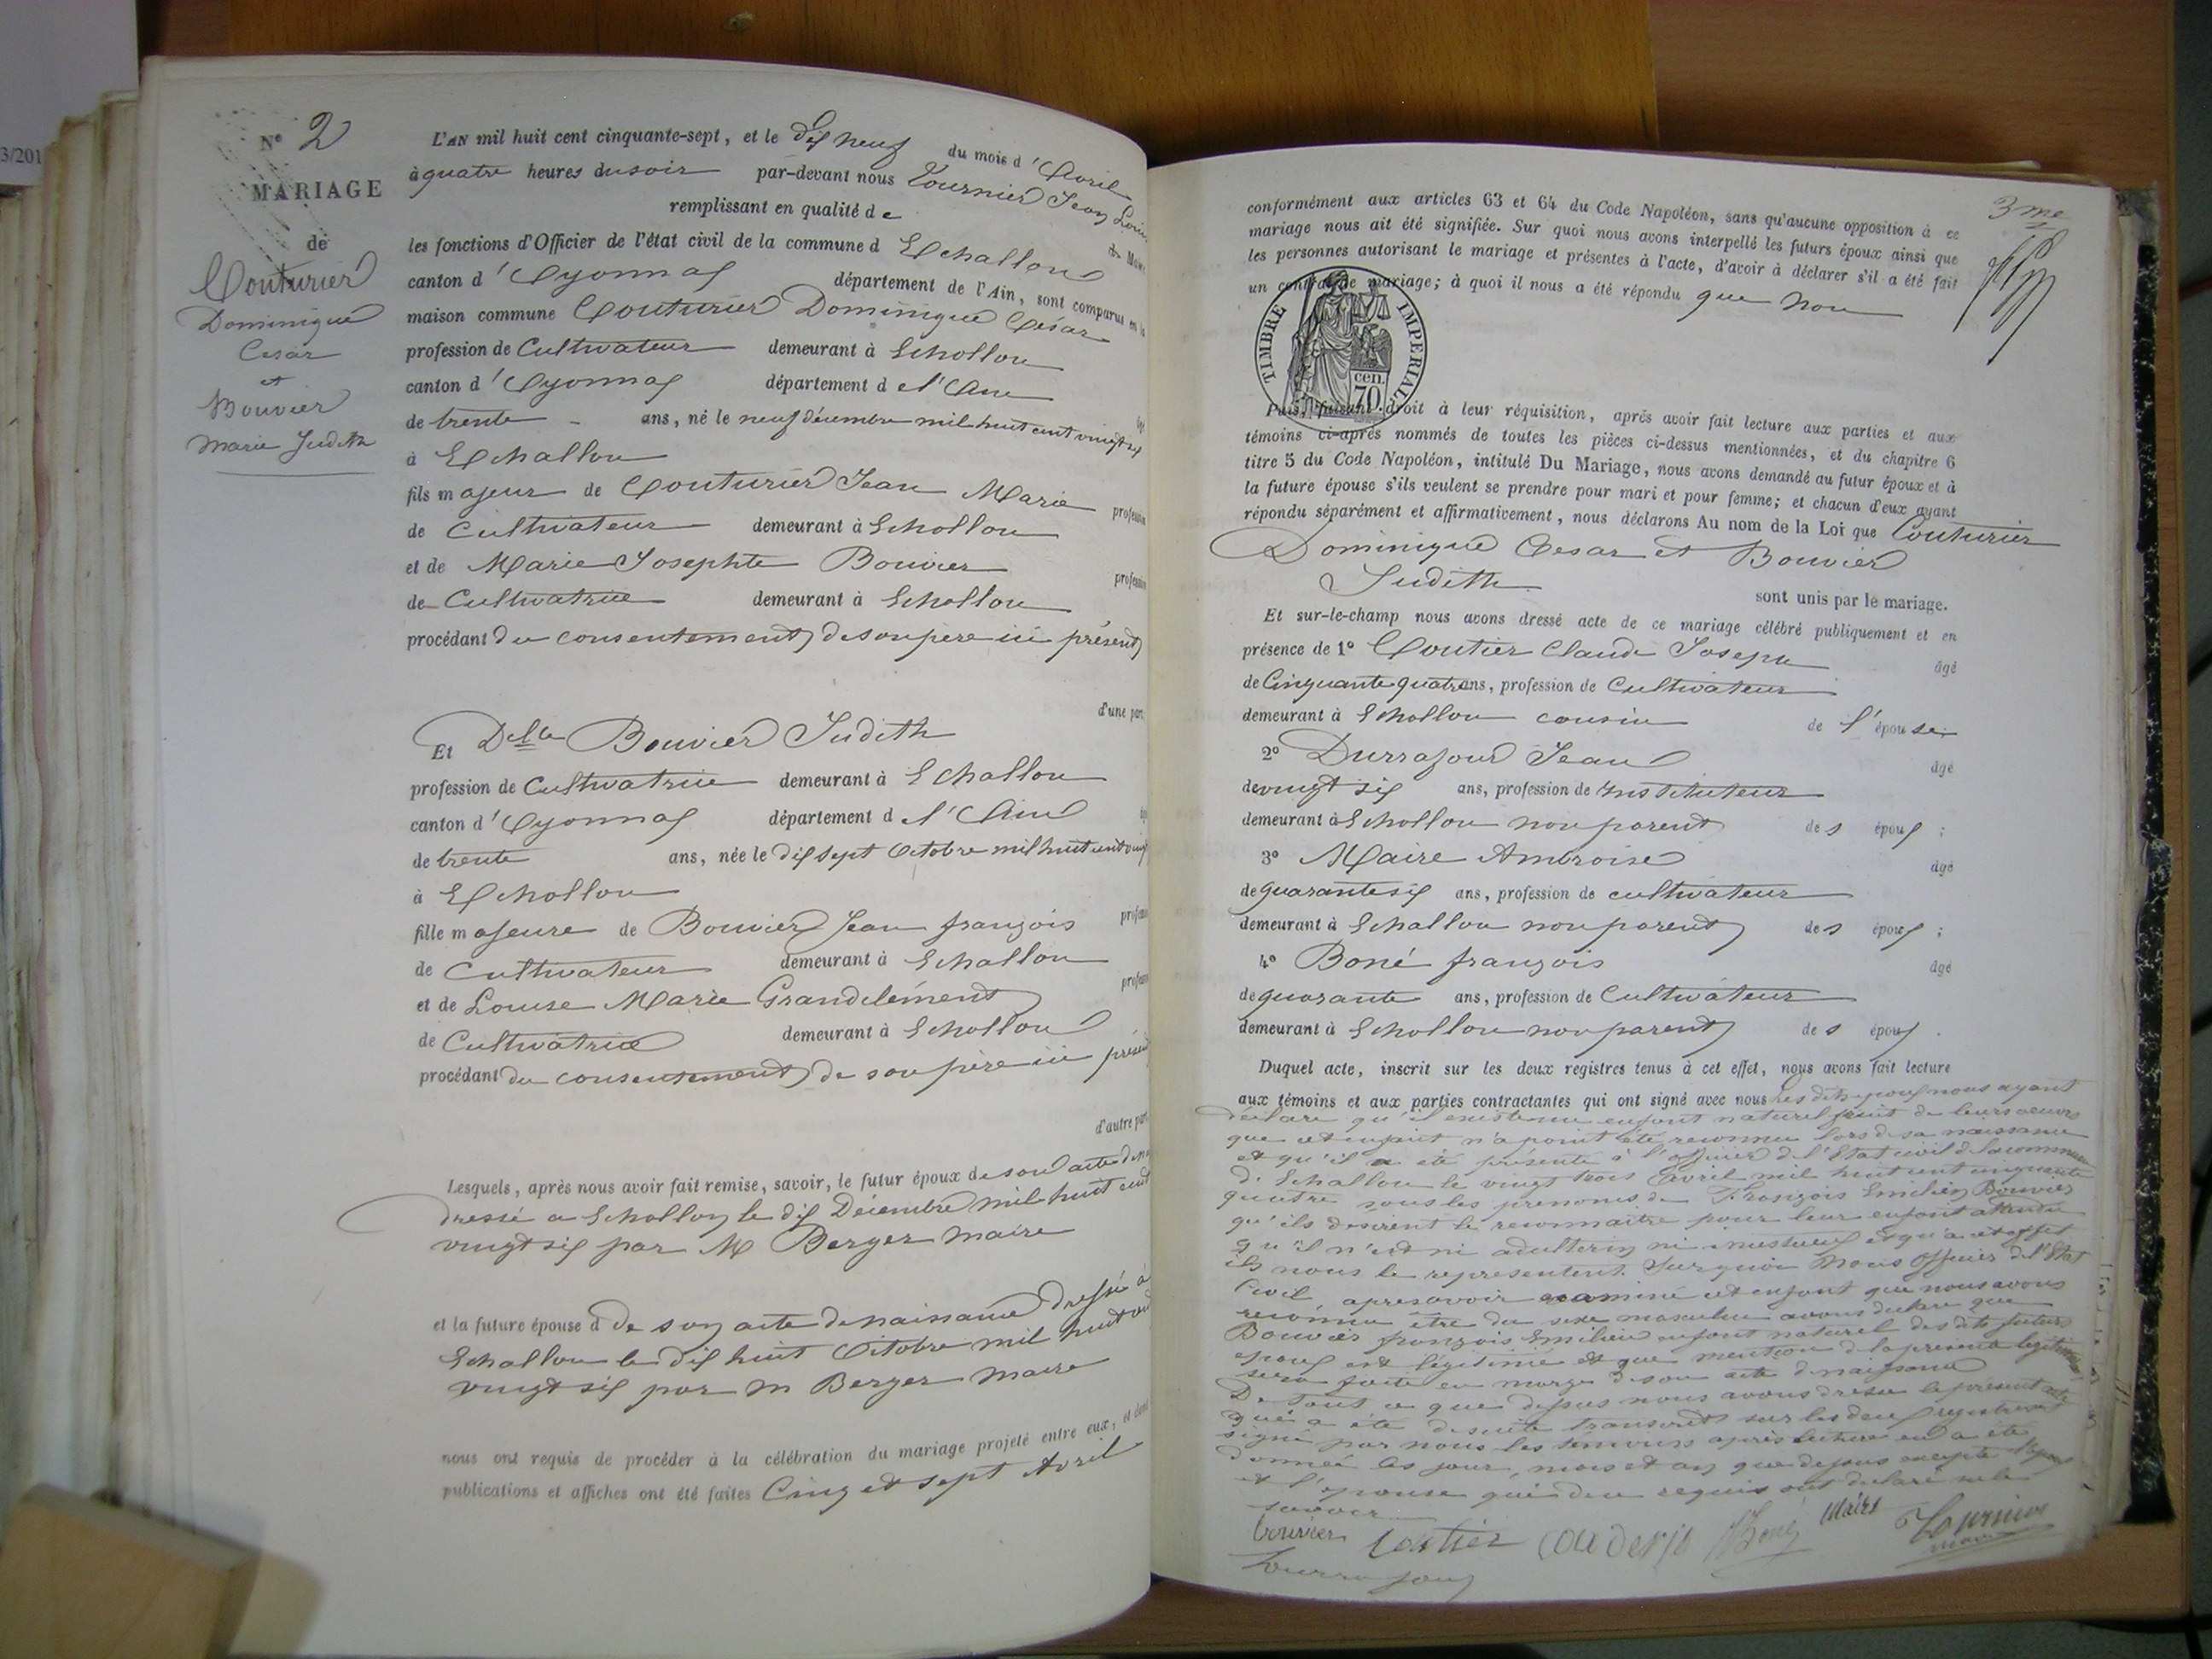 3/201
N° 2
MARIAGE
de
Couturier
Dominique
Cesar
et
Bouvier
Marie Judith
L'AN mil huit cent cinquante-sept, et le dix neuf du mois d'Avril
à quatre heures du soir par-devant nous Tournier Jean Louis
remplissant en qualité de Maire
les fonctions d'Officier de l'état civil de la commune d Echallon
canton d'Oyonnax département de l'Ain, sont comparus en la
maison commune Couturier Dominique César
profession de Cultivateur demeurant à Echallon
canton d'Oyonnax département de l'Ain
de trente ans, né le neuf décembre mil huit cent vingt six
à Echallon
fils majeur de Couturier Jean Marie profession
de Cultivateur demeurant à Echallon
et de Marie Josephte Bouvier profession
de Cultivatrice demeurant à Echallon
procédant du consentement de son père ici présent
d'une part
Et Delle Bouvier Judith
profession de Cultivatrice demeurant à Echallon
canton d'Oyonnax département de l'Ain
de trente ans, née le dix sept Octobre mil huit cent
à Echallon
fille majeure de Bouvier Jean françois
de Cultivateur demeurant à Echallon
et de Louise Marie Grandclément
de Cultivatrice demeurant à Echallon
procédant du consentement de son père ici présent
d'autre part
Lesquels, après nous avoir fait remise, savoir, le futur époux de son acte de
dressé a Echallon le dix Décembre mil huit cent
vingt six par M Berger maire
et la future épouse d de son acte de naissance dressé à
Echallon le dix huit Octobre mil huit
vingt six par m Berger maire
nous ont requis de procéder à la célébration du mariage projeté entre eux, et dont
publications et affiches ont été faites Cinq et sept Avril
3me
conformément aux articles 63 et 64 du Code Napoléon, sans qu'aucune opposition à ce
mariage nous ait été signifiée. Sur quoi nous avons interpellé les futurs époux ainsi que
les personnes autorisant le mariage et présentes à l'acte, d'avoir à déclarer s'il a été fait
un contrat de mariage; à quoi il nous a été répondu que non
TIMBRE IMPERIAL
70 cen.
Puis, faisant droit à leur réquisition, après avoir fait lecture aux parties et aux
témoins ci-après nommés de toutes les pièces ci-dessus mentionnées, et du chapitre 6
titre 5 du Code Napoléon, intitulé Du Mariage, nous avons demandé au futur époux et à
la future épouse s'ils veulent se prendre pour mari et pour femme; et chacun d'eux ayant
répondu séparément et affirmativement, nous déclarons Au nom de la Loi que Couturier
Dominique Cesar et Bouvier
Judith
sont unis par le mariage.
Et sur-le-champ nous avons dressé acte de ce mariage célébré publiquement et en
présence de 1° Coutier Claude Joseph âgé
de Cinquante quatre ans, profession de Cultivateur
demeurant à Echallon cousin de l'épouse
2° Durrafour Jean âgé
de vingt six ans, profession de Instituteur
demeurant à Echallon non parent des époux ;
3° Maire Ambroise âgé
de quarante six ans, profession de cultivateur
demeurant à Echallon non parent des époux ;
4° Boné françois âgé
de quarante ans, profession de Cultivateur
demeurant à Echallon non parent des époux .
Duquel acte, inscrit sur les deux registres tenus à cet effet, nous avons fait lecture
aux témoins et aux parties contractantes qui ont signé avec nous les dits époux nous ayant
declare qu'il existe un enfant naturel fruit de leurs œuvres
que cet enfant n'a point été reconnu lors de sa naissance
et qu'il a été présenté à l'officier de l'Etat civil de la commune
d'Echallon le vingt trois Avril mil huit cent cinquante
quatre sous les prenoms de François Emilien Bouvier
qu'ils desirent le reconnaitre pour leur enfant attendu
qu'il n'est ni adulterin ni incestueux et qu'à cet effet
ils nous le representent. Sur quoi Nous Officier de l'Etat
Civil, apres avoir examiné cet enfant que nous avons
reconnu être du sexe masculin avons declare que
Bouvier françois Emilien enfant naturel des dits futurs
epoux est légitimé et que mention de la présente legitimation
sera faite en marge de son acte de naissance
De tout ce que dessus nous avons dressé le présent acte
qui a été de suite transcrit sur les deux registres et
signé par nous les témoins après lecture en a été
donnée les jour, mois et an que dessus excepté l'époux
et l'épouse qui de ce requis ont declaré ne le
savoir
bouvier Coutier Couderje Boné Maire Tournier
maire
Durrafour